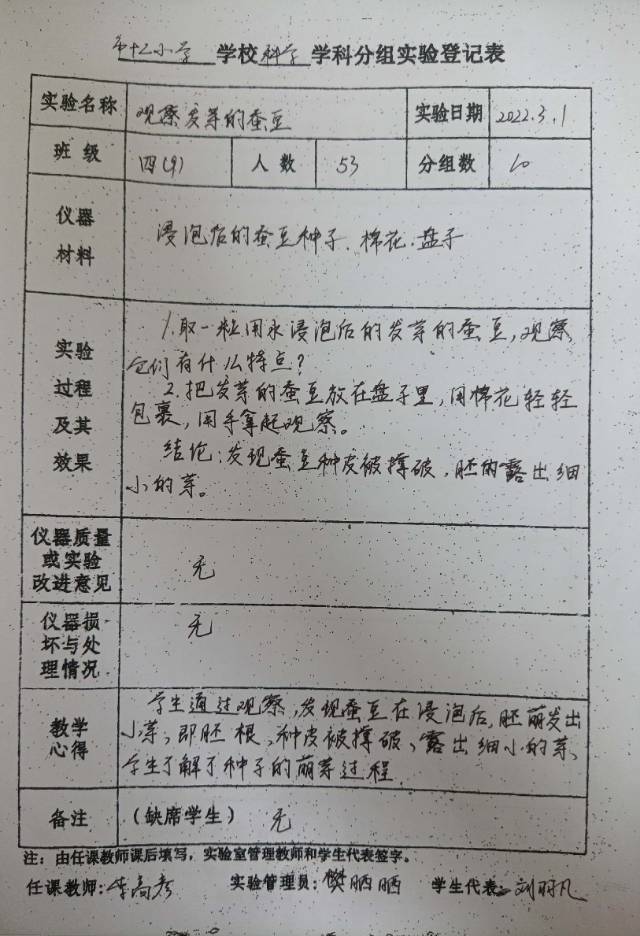 市十二小学 学校 科学 学科分组实验登记表
实验名称 观察发芽的蚕豆 实验日期 2022.3.1
班级 四(9) 人数 53 分组数 10
仪器材料 浸泡后的蚕豆种子、棉花、盘子
实验过程及其效果
1.取一粒用水浸泡后的发芽的蚕豆,观察
它们有什么特点?
2.把发芽的蚕豆放在盘子里,用棉花轻轻
包裹,用手拿起观察。
结论:发现蚕豆种皮被撑破,胚内露出细
小的芽。
仪器质量
或实验
改进意见
无
仪器损
坏与处
理情况
无
教学
心得
学生通过观察,发现蚕豆在浸泡后,胚萌发出
小芽,即胚根,种皮被撑破,露出细小的芽,
学生了解了种子的萌芽过程
备注 (缺席学生) 无
注:由任课教师课后填写,实验室管理教师和学生代表签字。
任课教师: 实验管理员:樊晒晒 学生代表: